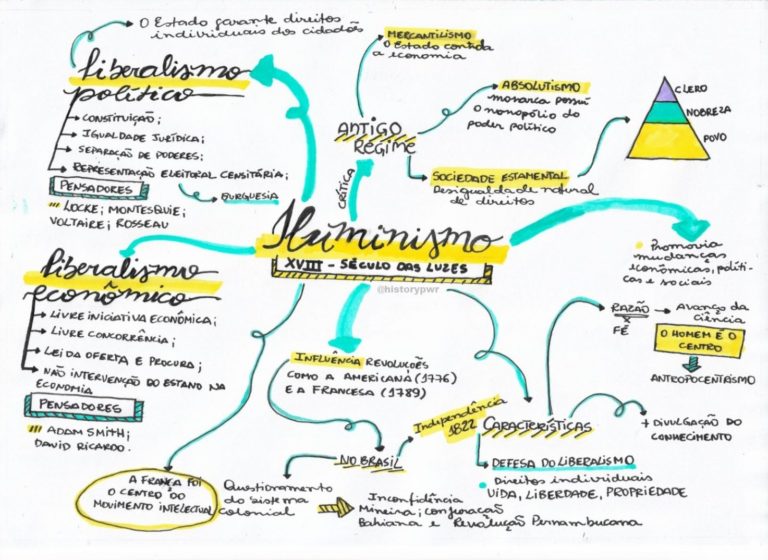 O Estado garante direitos
individuais dos cidadãos
liberalismo
político
CONSTITUIÇÃO;
IGUALDADE JURÍDICA;
SEPARAÇÃO DE PODERES;
REPRESENTAÇÃO ELEITORAL CENSITÁRIA;
PENSADORES
BURGUESIA
LOCKE; MONTESQUIE;
VOLTAIRE; ROSSEAU
MERCANTILISMO
O Estado controla
a economia
ANTIGO
REGIME
ABSOLUTISMO
monarca possui
o monopólio do
poder político
SOCIEDADE ESTAMENTAL
Desigualdade natural
de direitos
CLERO
NOBREZA
POVO
CRÍTICA
Iluminismo
XVIII - SÉCULO DAS LUZES
@historypwr
liberalismo
econômico
LIVRE INICIATIVA ECONÔMICA;
LIVRE CONCORRÊNCIA;
LEI DA OFERTA E PROCURA;
NÃO INTERVENÇÃO DO ESTADO NA
ECONOMIA
PENSADORES
ADAM SMITH;
DAVID RICARDO.
A FRANÇA FOI
O CENTRO DO
MOVIMENTO INTELECTUAL
INFLUÊNCIA REVOLUÇÕES
COMO A AMERICANA (1776)
E A FRANCESA (1789)
NO BRASIL
Independência
1822
Questionamento
do sistema
colonial
Inconfidência
Mineira; conjuração
Bahiana e Revolução Pernambucana
Promovia
mudanças
econômicas, políti-
cas e sociais
RAZÃO
X
FÉ
Avanço da
Ciência
O HOMEM É O
CENTRO
ANTROPOCENTRISMO
CARACTERÍSTICAS
+ DIVULGAÇÃO DO
CONHECIMENTO
DEFESA DO LIBERALISMO
Direitos individuais
VIDA, LIBERDADE, PROPRIEDADE